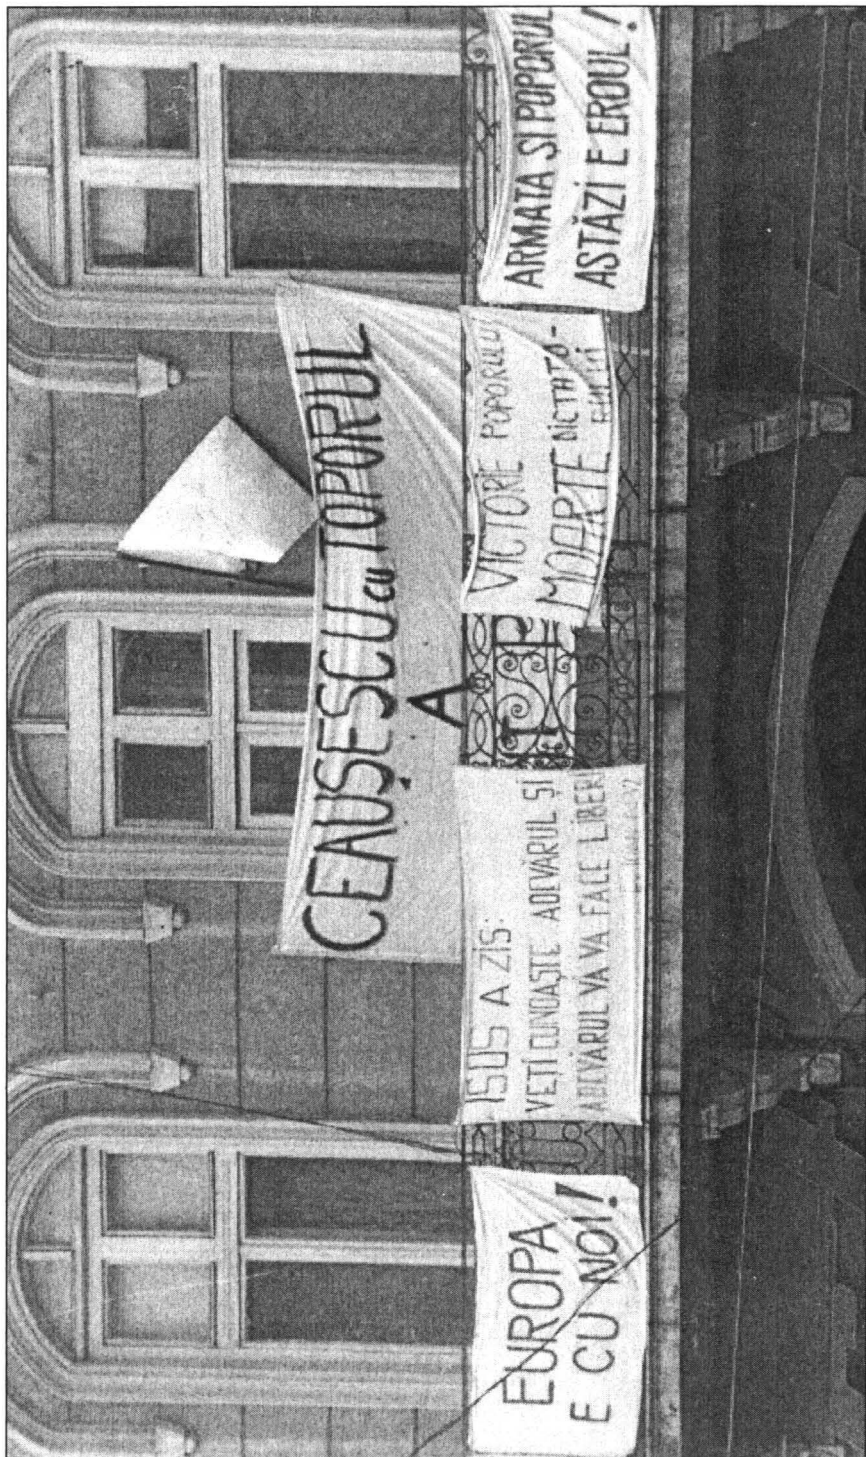 CEAUȘESCU cu TOPORUL
A
T P
EUROPA
E CU NOI!
ISUS A ZIS:
VEȚI CUNOAȘTE ADEVĂRUL ȘI
ADEVĂRUL VĂ VA FACE LIBERI
VICTORIE POPORULUI
MOARTE DICTATO-
ARMATA ȘI POPORUL
ASTĂZI E EROUL!